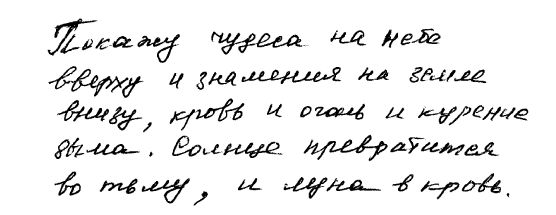 Покажу чудеса на небе
вверху и знамения на земле
внизу, кровь и огонь и курение
дыма. Солнце превратится
во тьму, и луна в кровь.